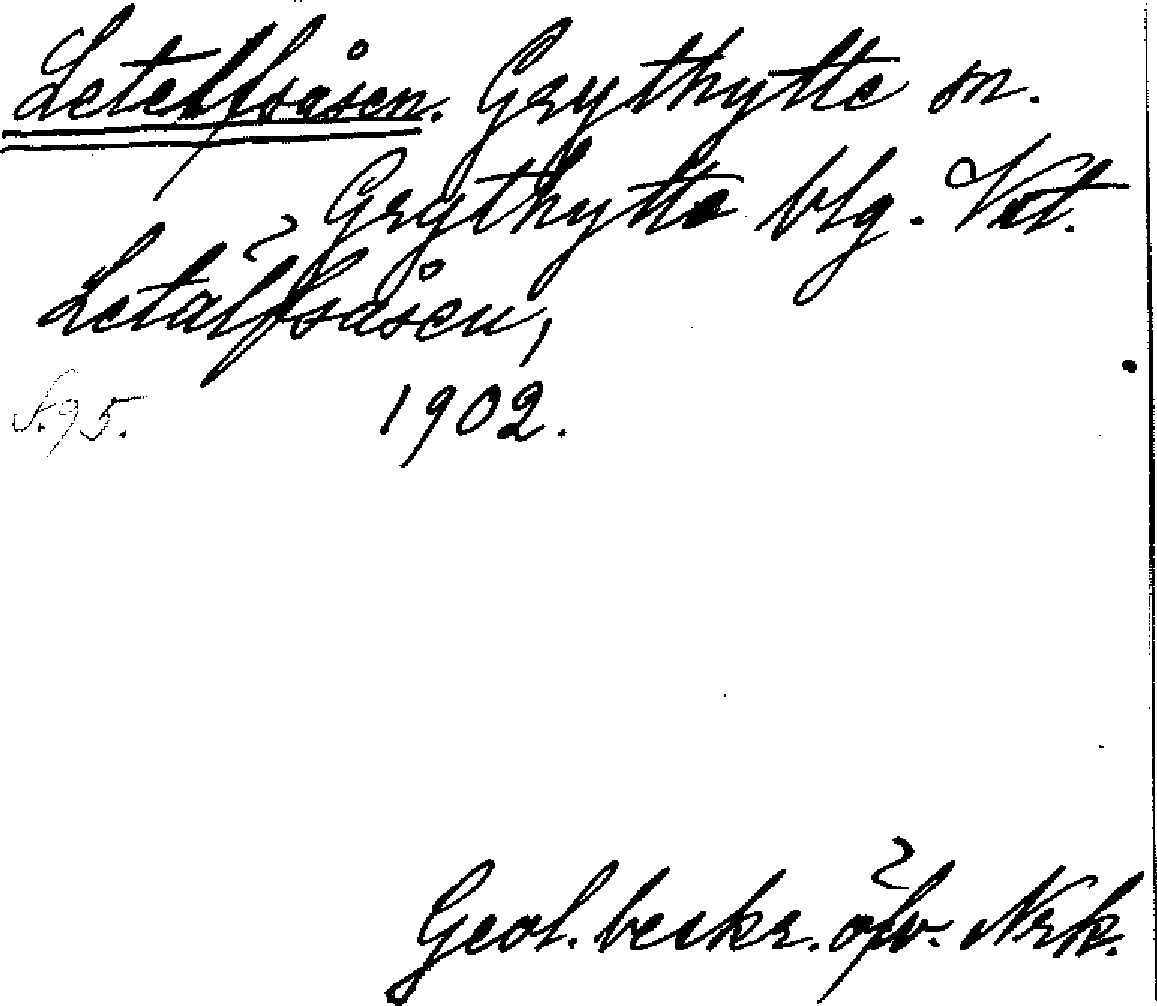 Letelfsåsen. Grythytte sn.
Grythytte blg. Vst.
Letälfsåsen,
S. 95. 1902.
Geol. beskr. öfv. Nrk.